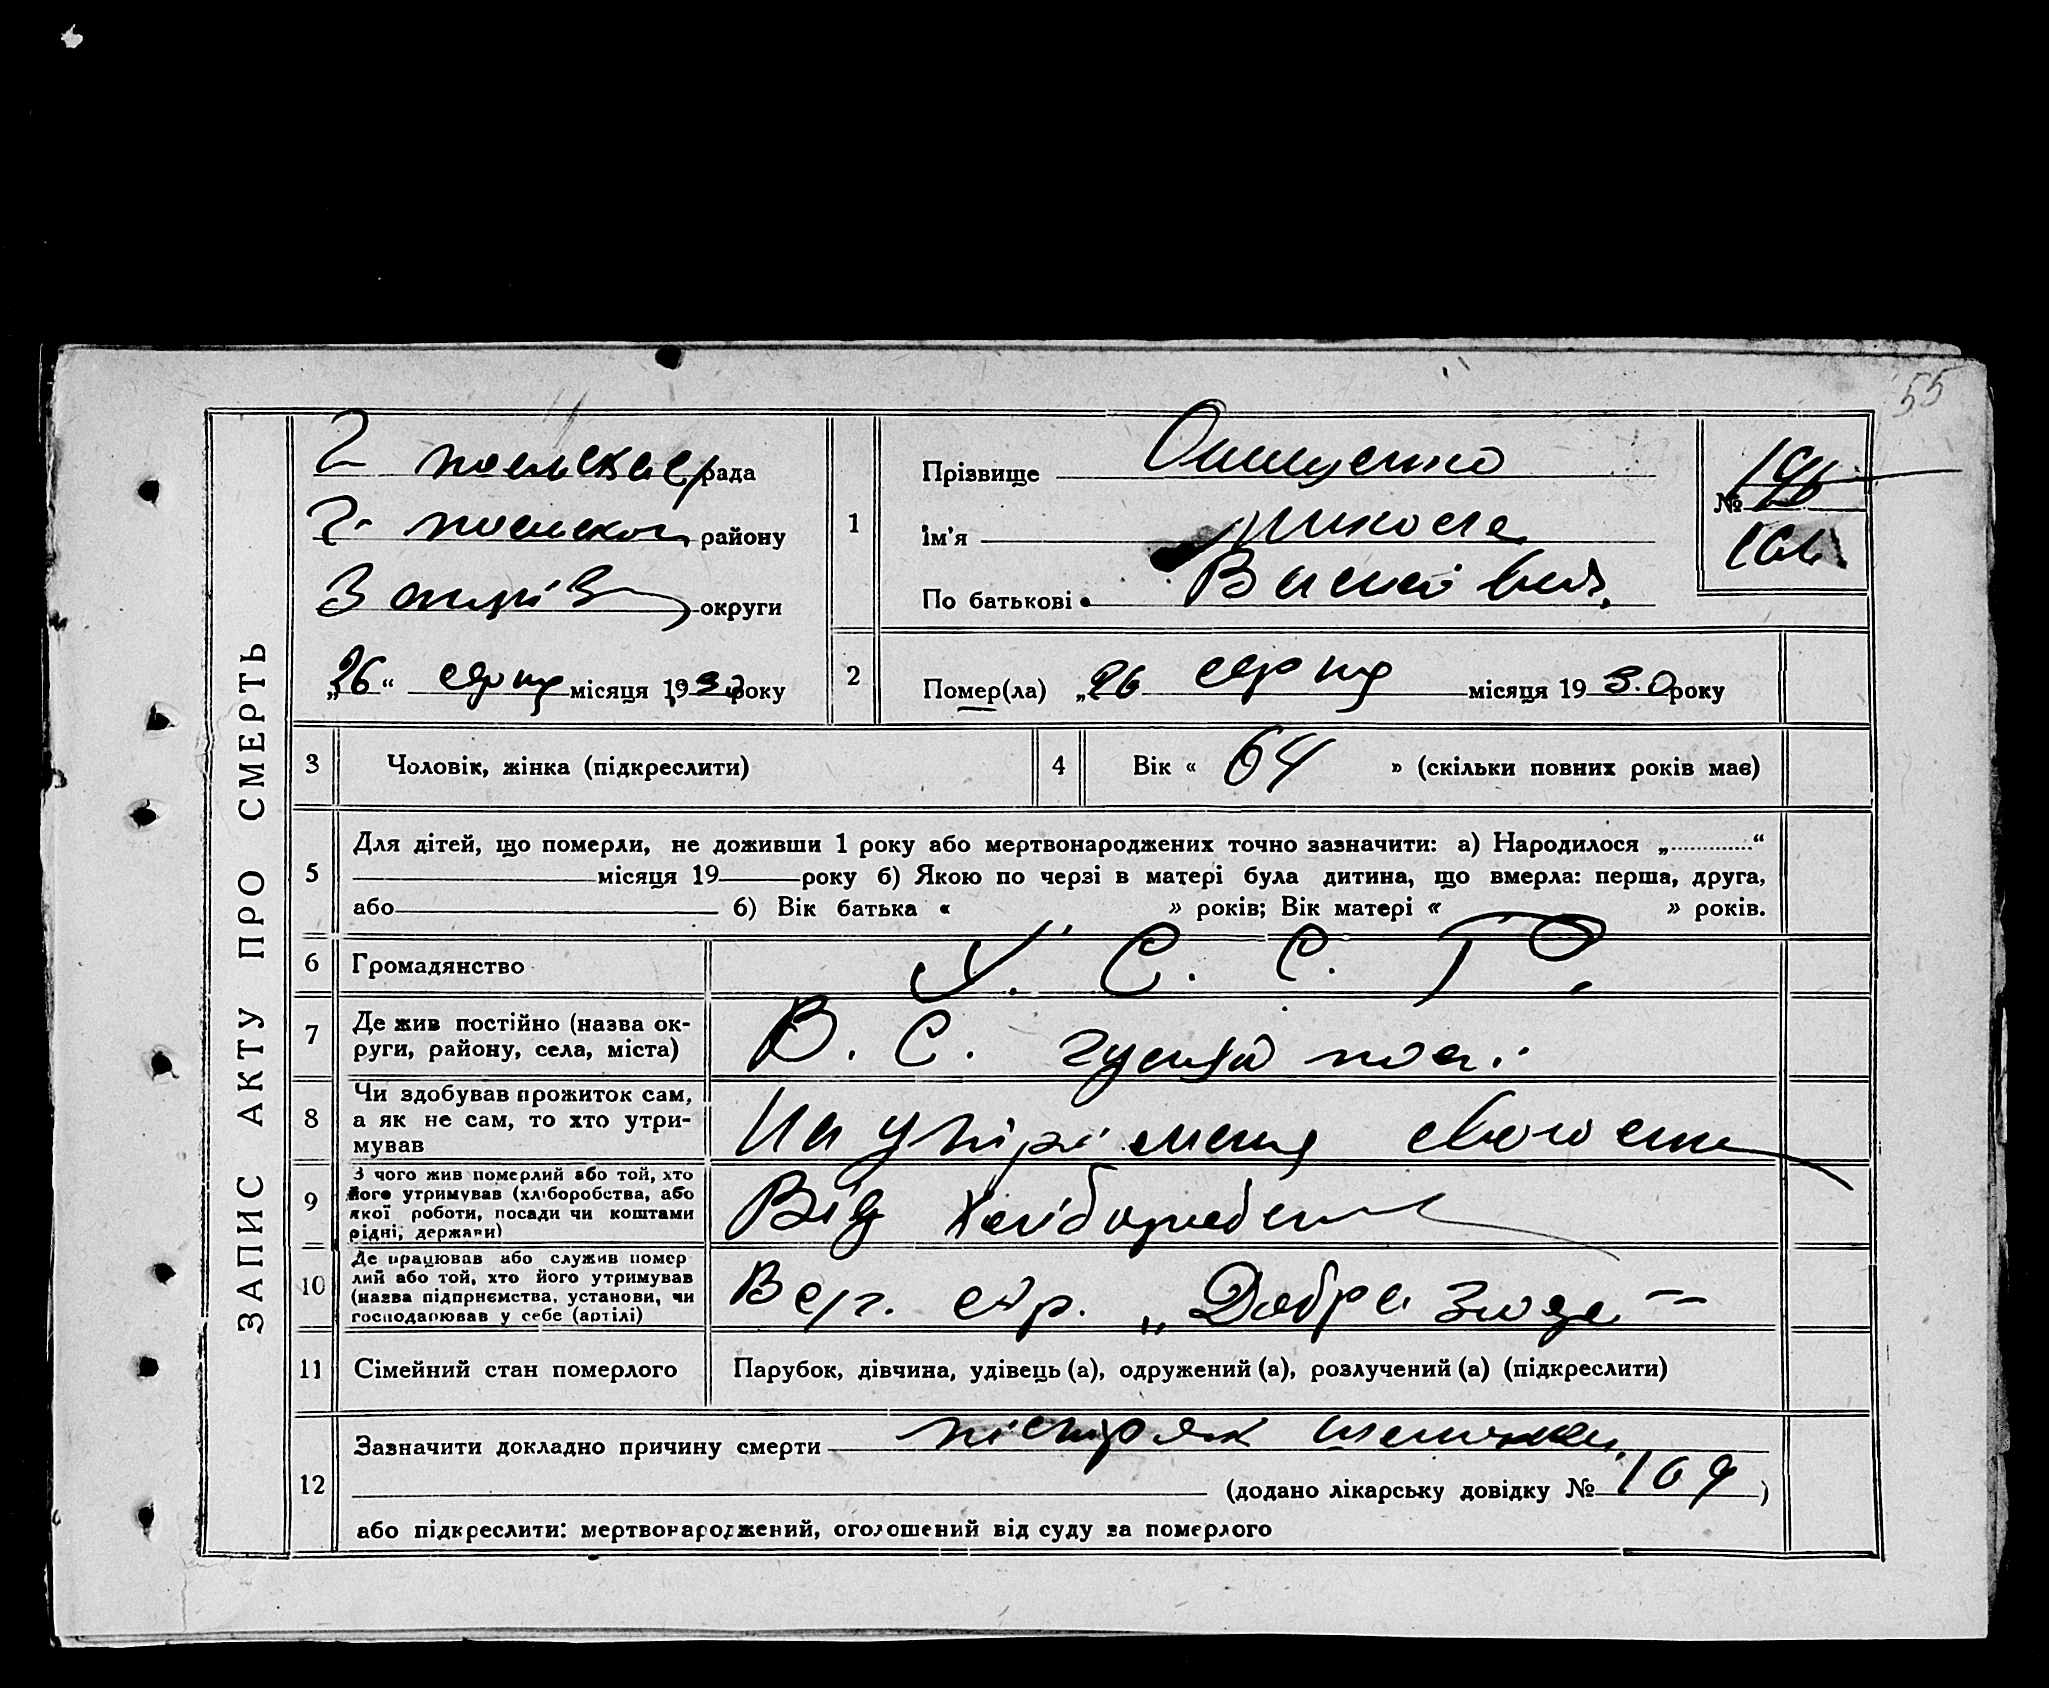 55
ЗАПИС АКТУ ПРО СМЕРТЬ
рада
району
округи
„26“ серпня місяця 1930 року
1
Прізвище Онищенко
Ім'я Микола
По батькові
№ 164
2
Помер(ла) „26 серпня місяця 1930 року
3
Чоловік, жінка (підкреслити)
4
Вік « 64 » (скільки повних років має)
5
Для дітей, що померли, не доживши 1 року або мертвонароджених точно зазначити: а) Народилося „ “
місяця 19 року б) Якою по черзі в матері була дитина, що вмерла: перша, друга,
або б) Вік батька « » років; Вік матері « » років.
6
Громадянство У. С. С. Р.
7
Де жив постійно (назва ок-
руги, району, села, міста)
В. С. Гуляй пол.
8
Чи здобував прожиток сам,
а як не сам, то хто утри-
мував
На утріманя свого сина
9
З чого жив померлий або той, хто
його утримував (хліборобства, або
якої роботи, посади чи коштами
рідні, держави)
Від хліборобства
10
Де працював або служив помер
лий або той, хто його утримував
(назва підприємства, установи, чи
господарював у себе (артілі)
„Добра згода“
11
Сімейний стан померлого
Парубок, дівчина, удівець (а), одружений (а), розлучений (а) (підкреслити)
12
Зазначити докладно причину смерти пістряк шлунка
(додано лікарську довідку № 169)
або підкреслити: мертвонароджений, оголошений від суду за померлого